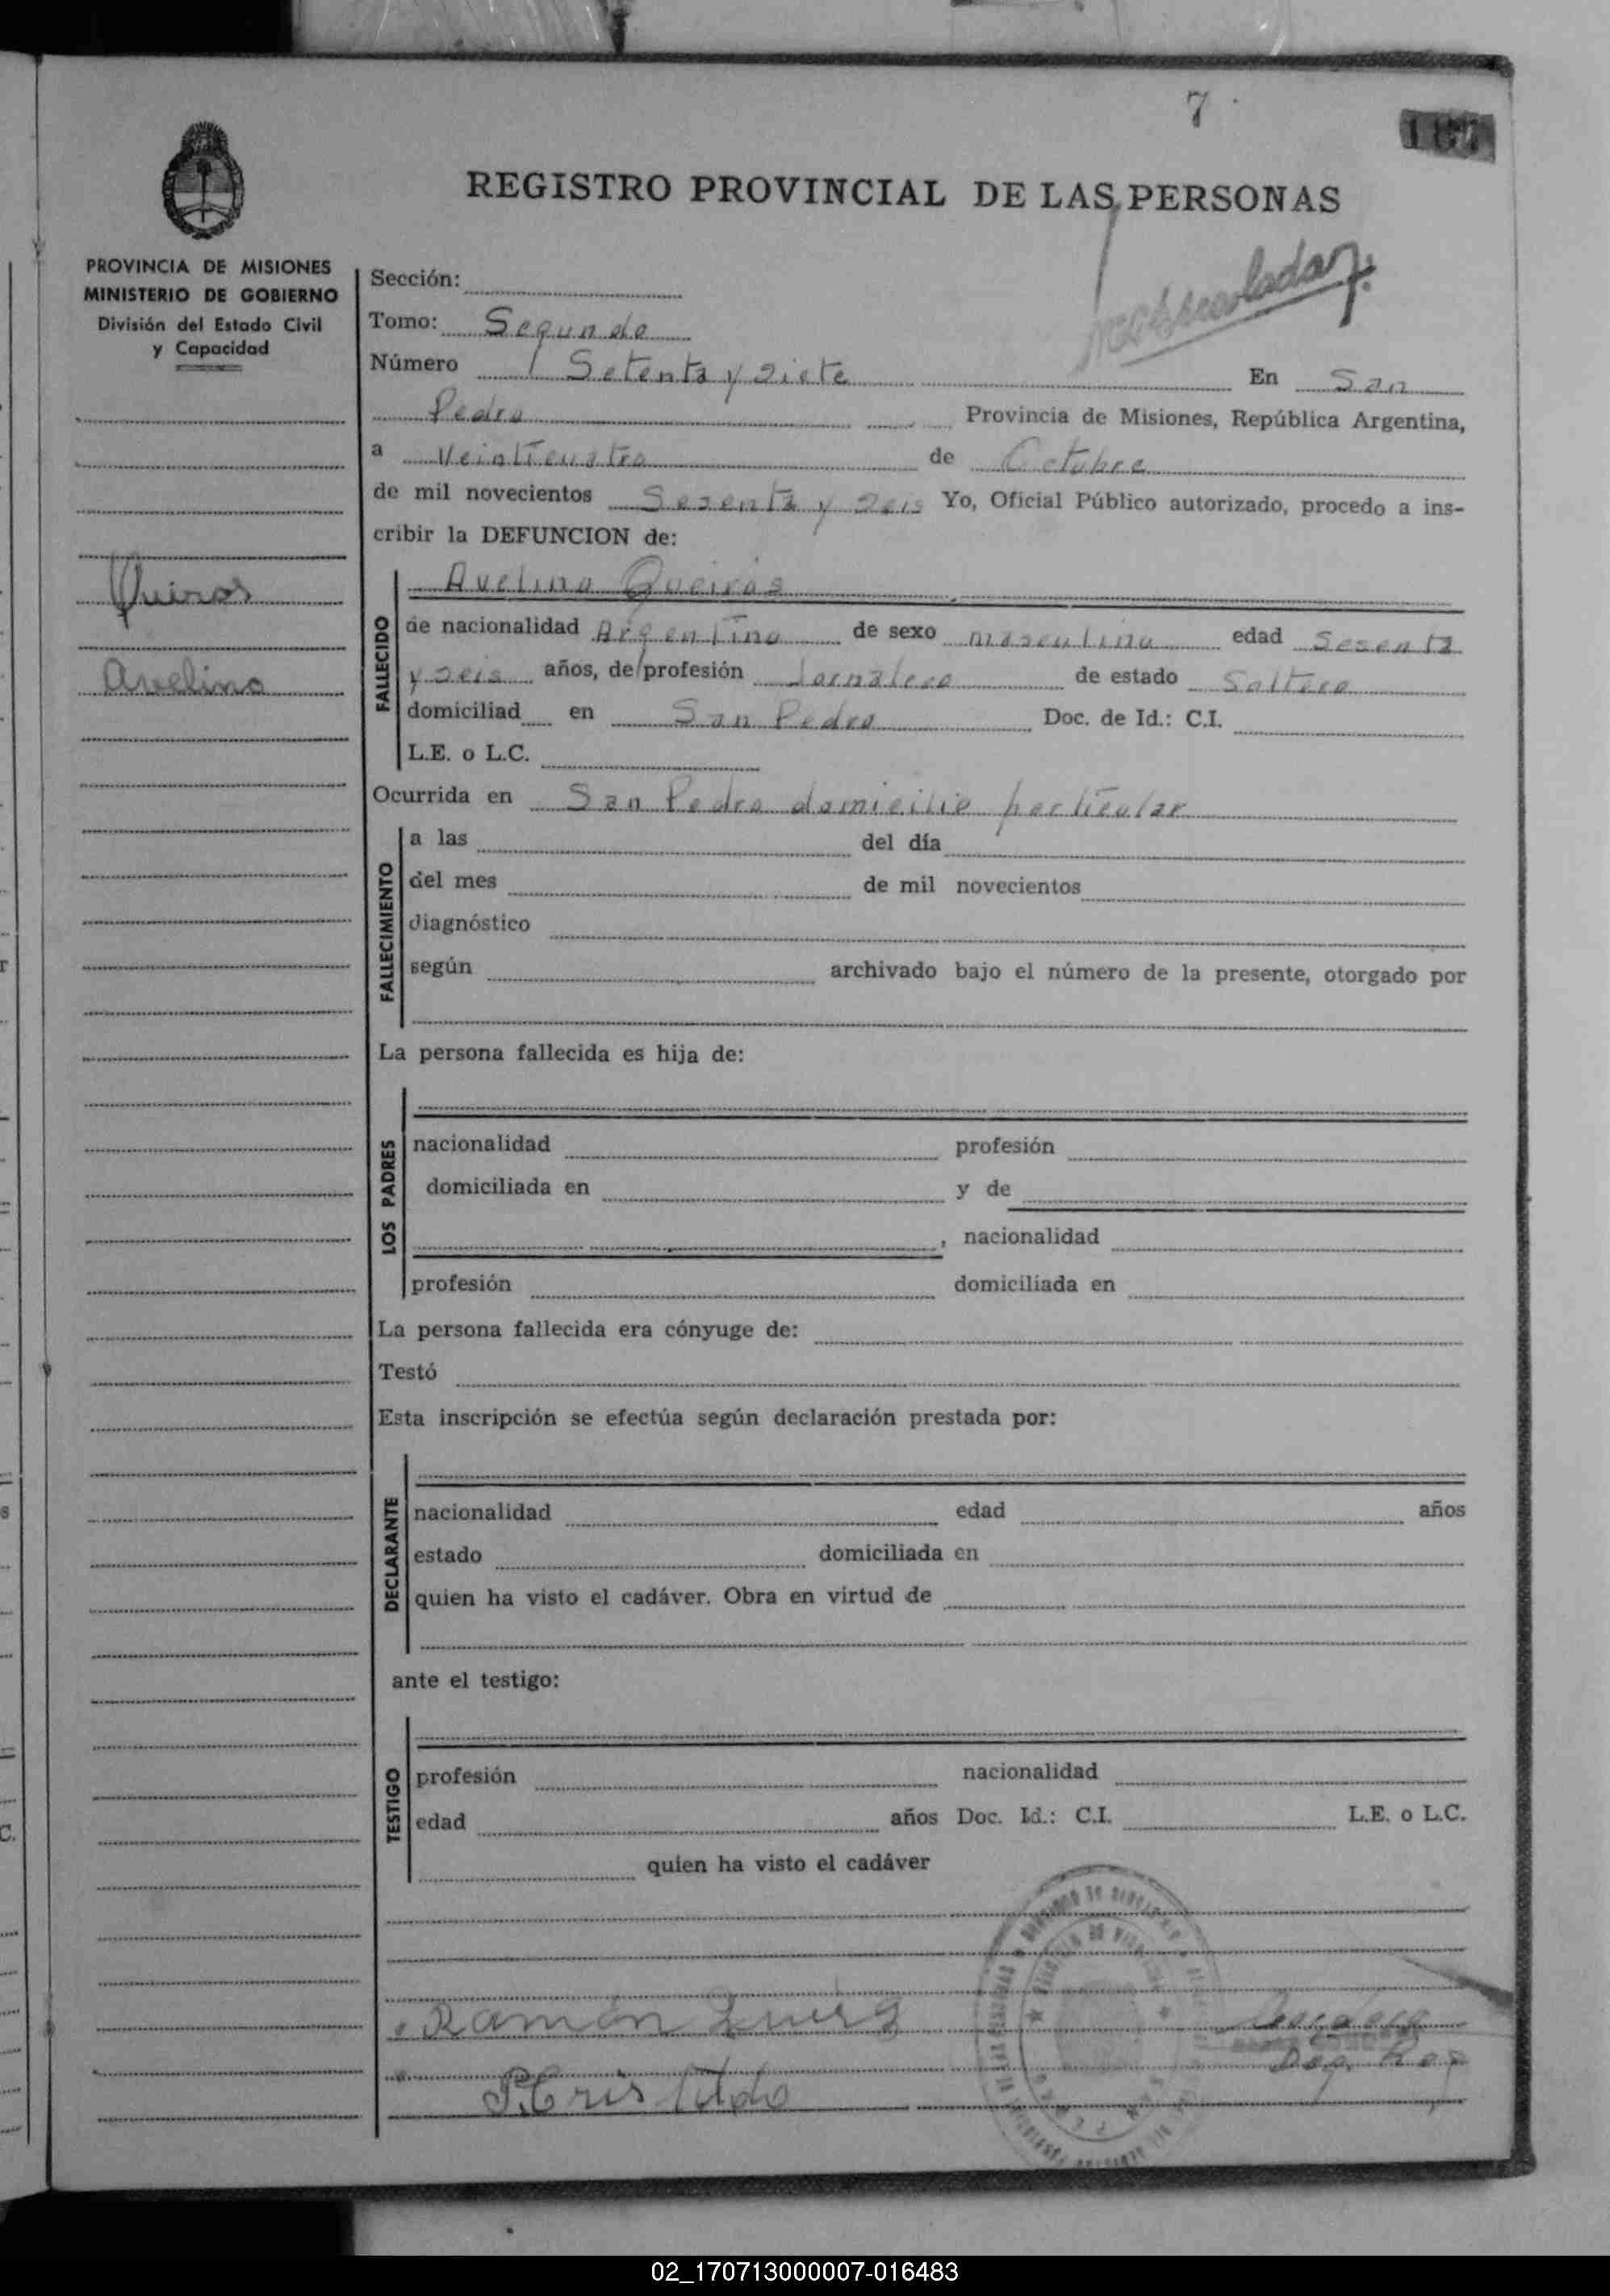 7
REGISTRO PROVINCIAL DE LAS PERSONAS
PROVINCIA DE MISIONES
MINISTERIO DE GOBIERNO
División del Estado Civil
y Capacidad
Quiros
Avelino
Sección:
Tomo: Segundo
Número Setenta y siete En San
Pedro Provincia de Misiones, República Argentina,
a Veinticuatro de Octubre
de mil novecientos Sesenta y seis Yo, Oficial Público autorizado, procedo a ins-
cribir la DEFUNCION de:
FALLECIDO
Avelino Queirós
de nacionalidad Argentino de sexo masculino edad Sesenta
y seis años, de profesión Jornalero de estado Soltero
domiciliad en San Pedro Doc. de Id.: C.I.
L.E. o L.C.
Ocurrida en San Pedro domicilio particular
FALLECIMIENTO
a las del día
del mes de mil novecientos
diagnóstico
según archivado bajo el número de la presente, otorgado por
La persona fallecida es hija de:
LOS PADRES
nacionalidad profesión
domiciliada en y de
, nacionalidad
profesión domiciliada en
La persona fallecida era cónyuge de:
Testó
Esta inscripción se efectúa según declaración prestada por:
DECLARANTE
nacionalidad edad años
estado domiciliada en
quien ha visto el cadáver. Obra en virtud de
ante el testigo:
TESTIGO
profesión nacionalidad
edad años Doc. Id.: C.I. L.E. o L.C.
quien ha visto el cadáver
Ramón
02_170713000007-016483